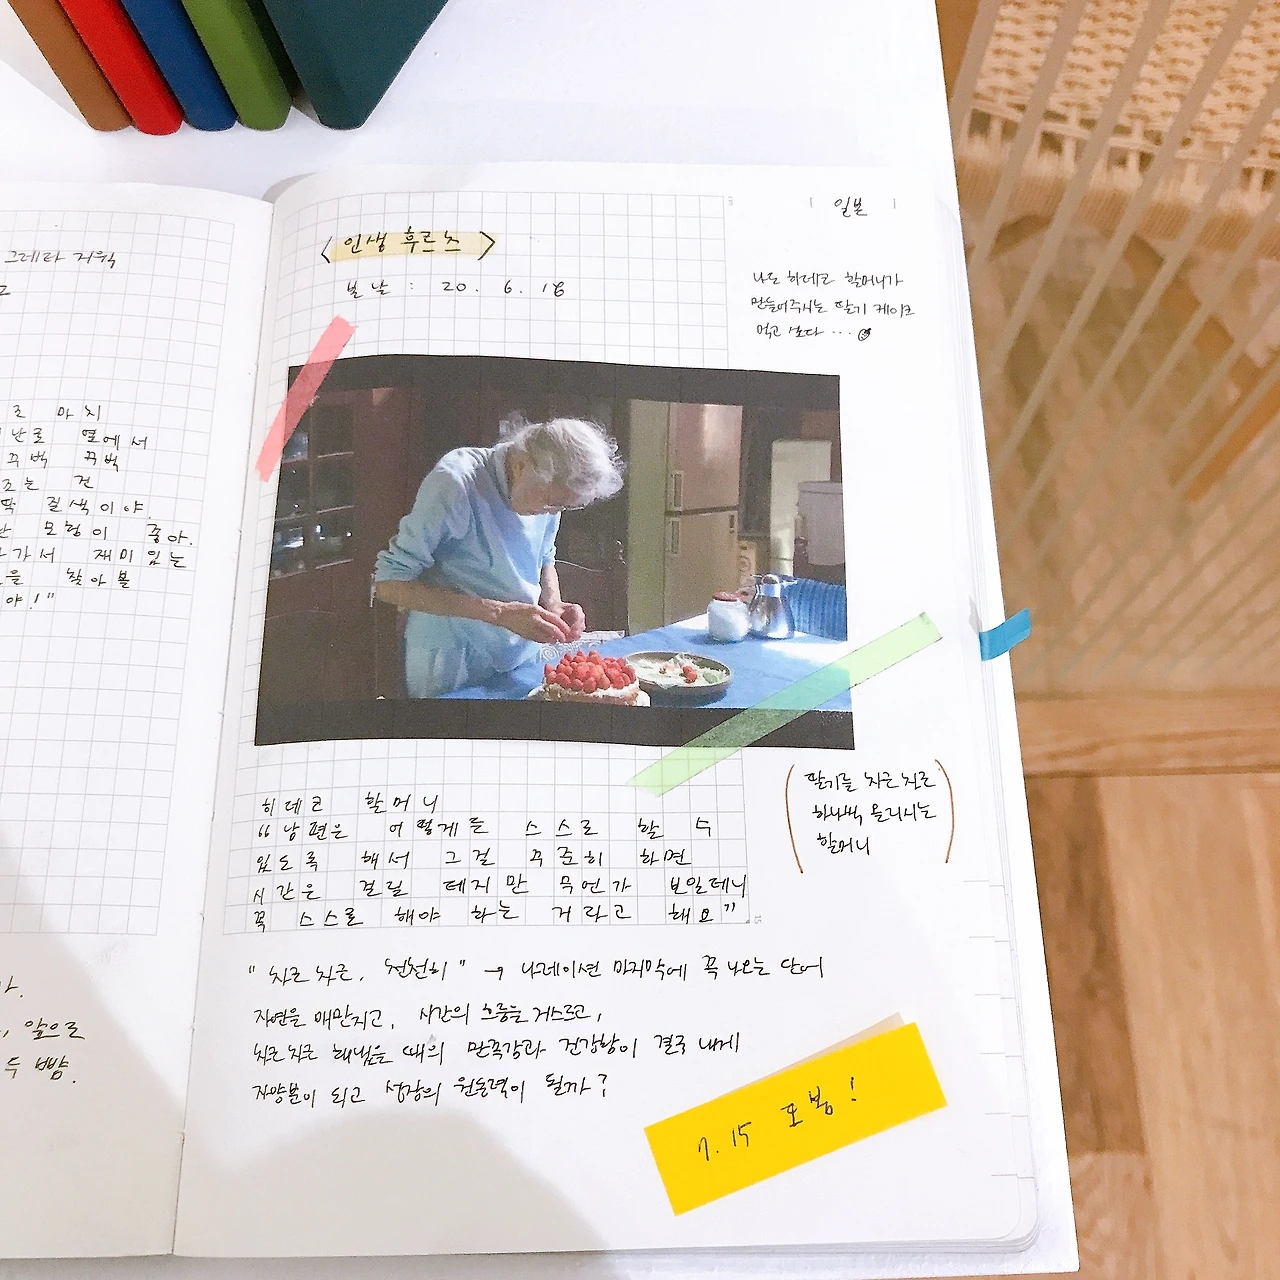 그레타 지윅
로 마치
난로 옆에서
꾸벅 꾸벅
조는 건
딱 질색이야.
난 모험이 좋아.
가서 재미있는
을 찾아볼
야!"
가.
, 앞으로
두 뺨.
일본
<인생 후르츠>
본 날 : 20. 6. 18
나도 히데코 할머니가
만들어주시는 딸기 케이크
먹고 싶다 ...
히데코 할머니
"남편은 어떻게든 스스로 할 수
있도록 해서 그걸 꾸준히 하면
시간은 걸릴 테지만 무언가 보일테니
꼭 스스로 해야 하는 거라고 해요"
(딸기를 차근차근
하나씩 올리시는
할머니)
"차근차근, 천천히" → 나레이션 마지막에 꼭 나오는 단어
자연을 매만지고, 시간의 흐름을 거스르고,
차근차근 해냈을 때의 만족감과 건강함이 결국 내게
자양분이 되고 성장의 원동력이 될까?
7.15 로봉!